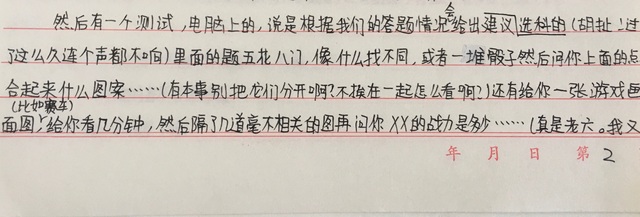 然后有一个测试，电脑上的，说是根据我们的答题情况会给出建议选科的（胡扯！过
了这么久连个声都不响）里面的题五花八门，像什么找不同，或者一堆骰子然后问你上面的点
合起来什么图案……（有本事别把它们分开啊？不挨在一起怎么看啊？）还有给你一张游戏画
面图（比如赛车），给你看几分钟，然后隔了几道毫不相关的图再问你XX的战力是多少……（真是老六。我又
年 月 日 第 2